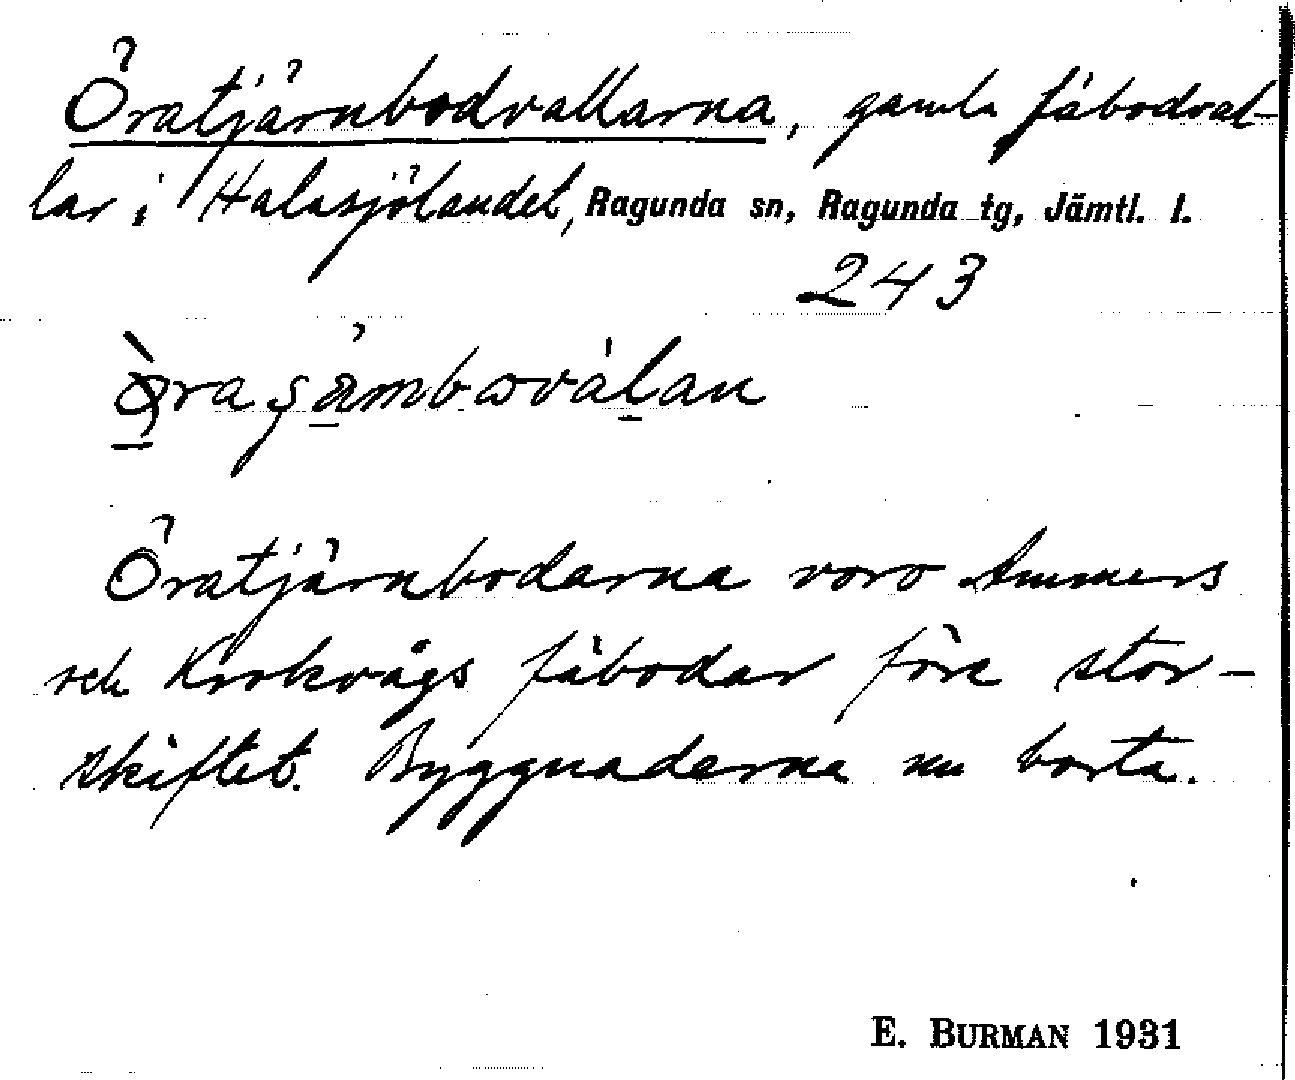 Öratjärnbodvallarna, gamla fäbodval-
lar i Halasjölandet, Ragunda sn, Ragunda tg, Jämtl. l.
243
Öratjärnbodarna voro Ammers
och Krokvågs fäbodar före stor-
skiftet. Byggnaderna nu borta.
E. BURMAN 1931